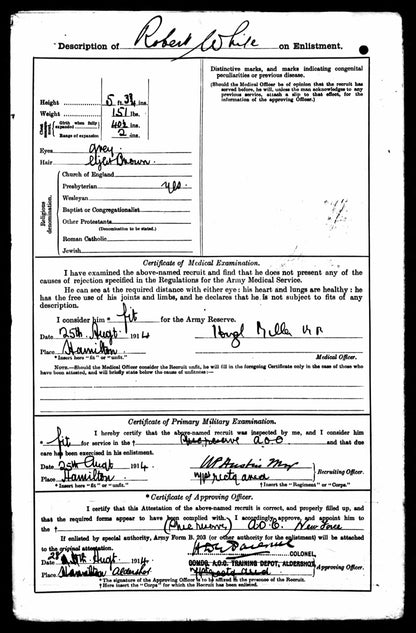 Description of Robert White on Enlistment.
Distinctive marks, and marks indicating congenital
peculiarities or previous disease.
(Should the Medical Officer be of opinion that the recruit has
served before, he will, unless the man acknowledges to any
previous service, attach a slip to that effect, for the
information of the approving Officer.)
Height 5 ft. 3¾ ins.
Weight 151 lbs.
Chest Measurement
Girth when fully expanded 40½ ins.
Range of expansion 2 ins.
Eyes grey
Hair Brown
Religious denomination.
Church of England
Presbyterian yes.
Wesleyan
Baptist or Congregationalist
Other Protestants
(Denomination to be stated.)
Roman Catholic
Jewish
Certificate of Medical Examination.
I have examined the above-named recruit and find that he does not present any of the
causes of rejection specified in the Regulations for the Army Medical Service.
He can see at the required distance with either eye; his heart and lungs are healthy; he
has the free use of his joints and limbs, and he declares that he is not subject to fits of any
description.
I consider him * fit for the Army Reserve.
Date 25th Augt 1914
Place Hamilton
Hugh Miller
Medical Officer.
* Insert here "fit" or "unfit."
NOTE.—Should the Medical Officer consider the Recruit unfit, he will fill in the foregoing Certificate only in the case of those who
have been attested, and will briefly state below the cause of unfitness:—
Certificate of Primary Military Examination.
I hereby certify that the above-named recruit was inspected by me, and I consider him
* fit for service in the † reserve A.O.C and that due
care has been exercised in his enlistment.
Date 25th Augt 1914.
Place Hamilton
Recruiting Officer.
* Insert here "fit" or "unfit."
† Insert the "Regiment" or "Corps."
* Certificate of Approving Officer.
I certify that this Attestation of the above-named recruit is correct, and properly filled up, and
that the required forms appear to have been complied with. I accordingly approve, and appoint him to
the † (reserve) A.O.C. New Force
If enlisted by special authority, Army Form B. 203 (or other authority for the enlistment) will be attached
to the original attestation.
COLONEL,
Date Augt. 1914.
COMDG. A.O.C. TRAINING DEPOT, ALDERSHOT
Place Hamilton Aldershot
Approving Officer.
* The signature of the Approving Officer is to be affixed in the presence of the Recruit.
† Here insert the "Corps" for which the Recruit has been enlisted.